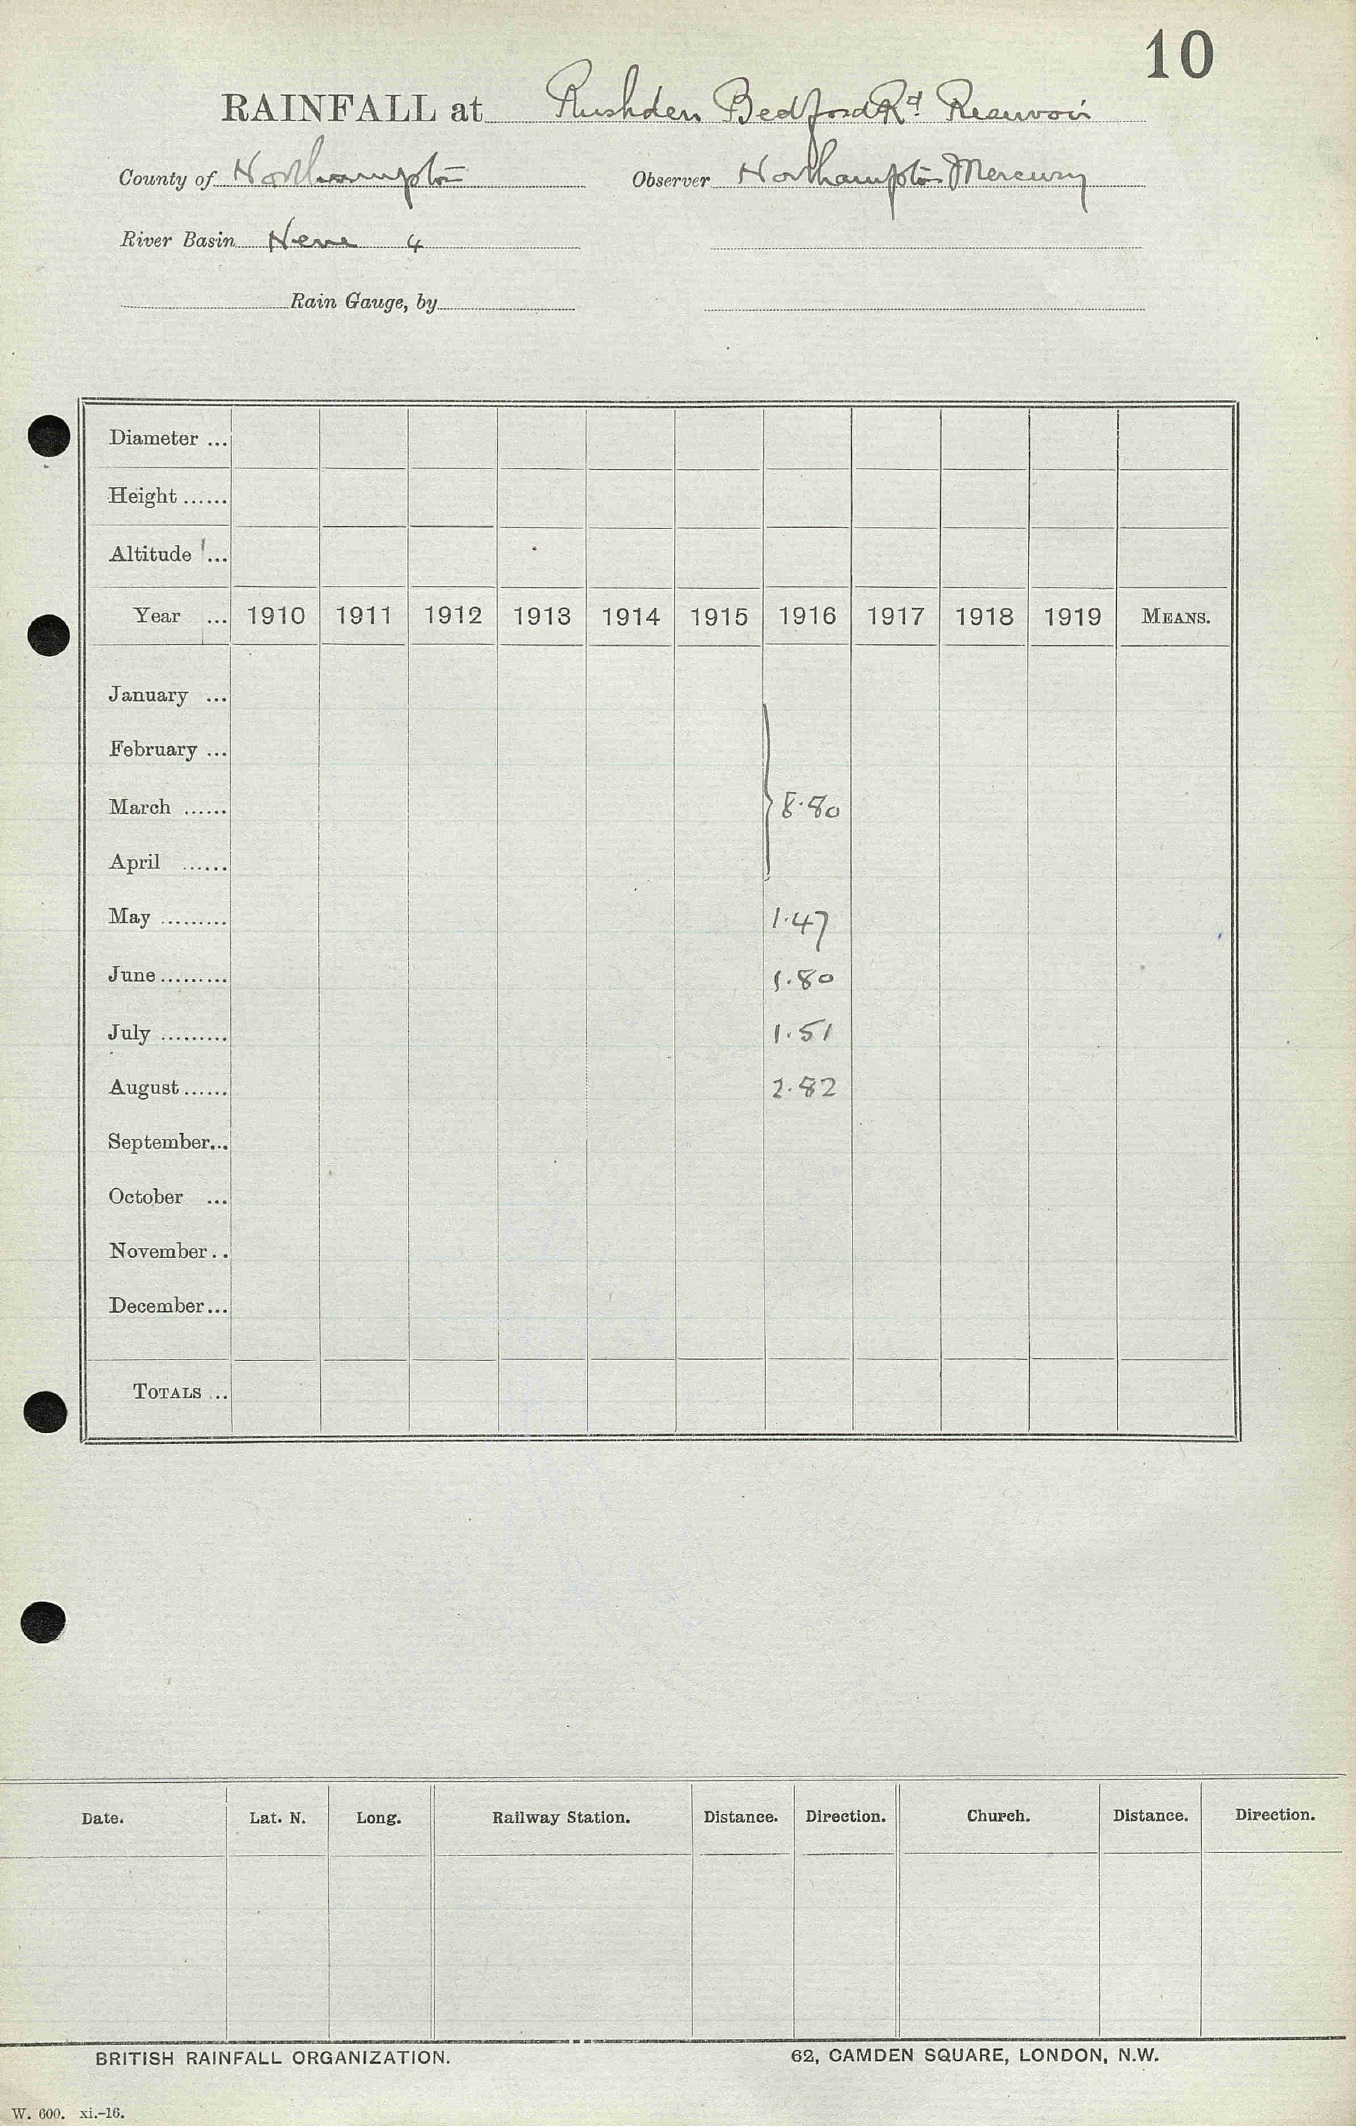 10
RAINFALL at Rushden Bedford Rd Reservoir
County of Northampton Observer Northampton Mercury
River Basin Nene 4
Rain Gauge, by
Diameter ...
Height ......
Altitude ...
Year ... 1910 1911 1912 1913 1914 1915 1916 1917 1918 1919 MEANS.
January ...
February ...
March ...... } 8.80
April ......
May ......... 1.47
June ......... 1.80
July ......... 1.51
August ...... 2.82
September...
October ...
November..
December...
TOTALS ...
Date. Lat. N. Long. Railway Station. Distance. Direction. Church. Distance. Direction.
BRITISH RAINFALL ORGANIZATION. 62, CAMDEN SQUARE, LONDON, N.W.
W. 600. xi.-16.